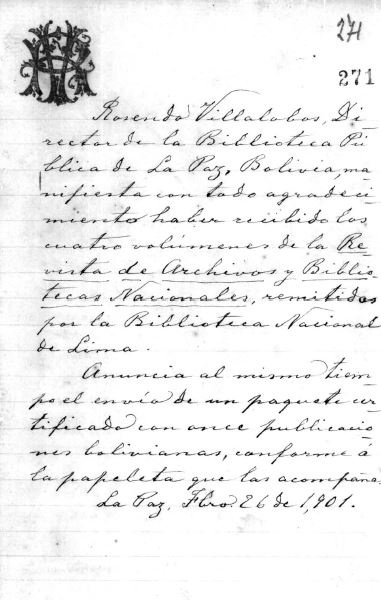 271
271
Rosendo Villalobos, Di
rector de la Biblioteca Pú
blica de La Paz, Bolivia, ma
nifiesta con todo agradeci
miento haber recibido los
cuatro volúmenes de la Re
vista de Archivos y Biblio
tecas Nacionales, remitidos
por la Biblioteca Nacional
de Lima.
Anuncia al mismo tiem
po el envío de un paquete cer
tificado con once publicacio
nes bolivianas, conforme á
la papeleta que las acompaña.
La Paz, Fbro. 26 de 1,901.